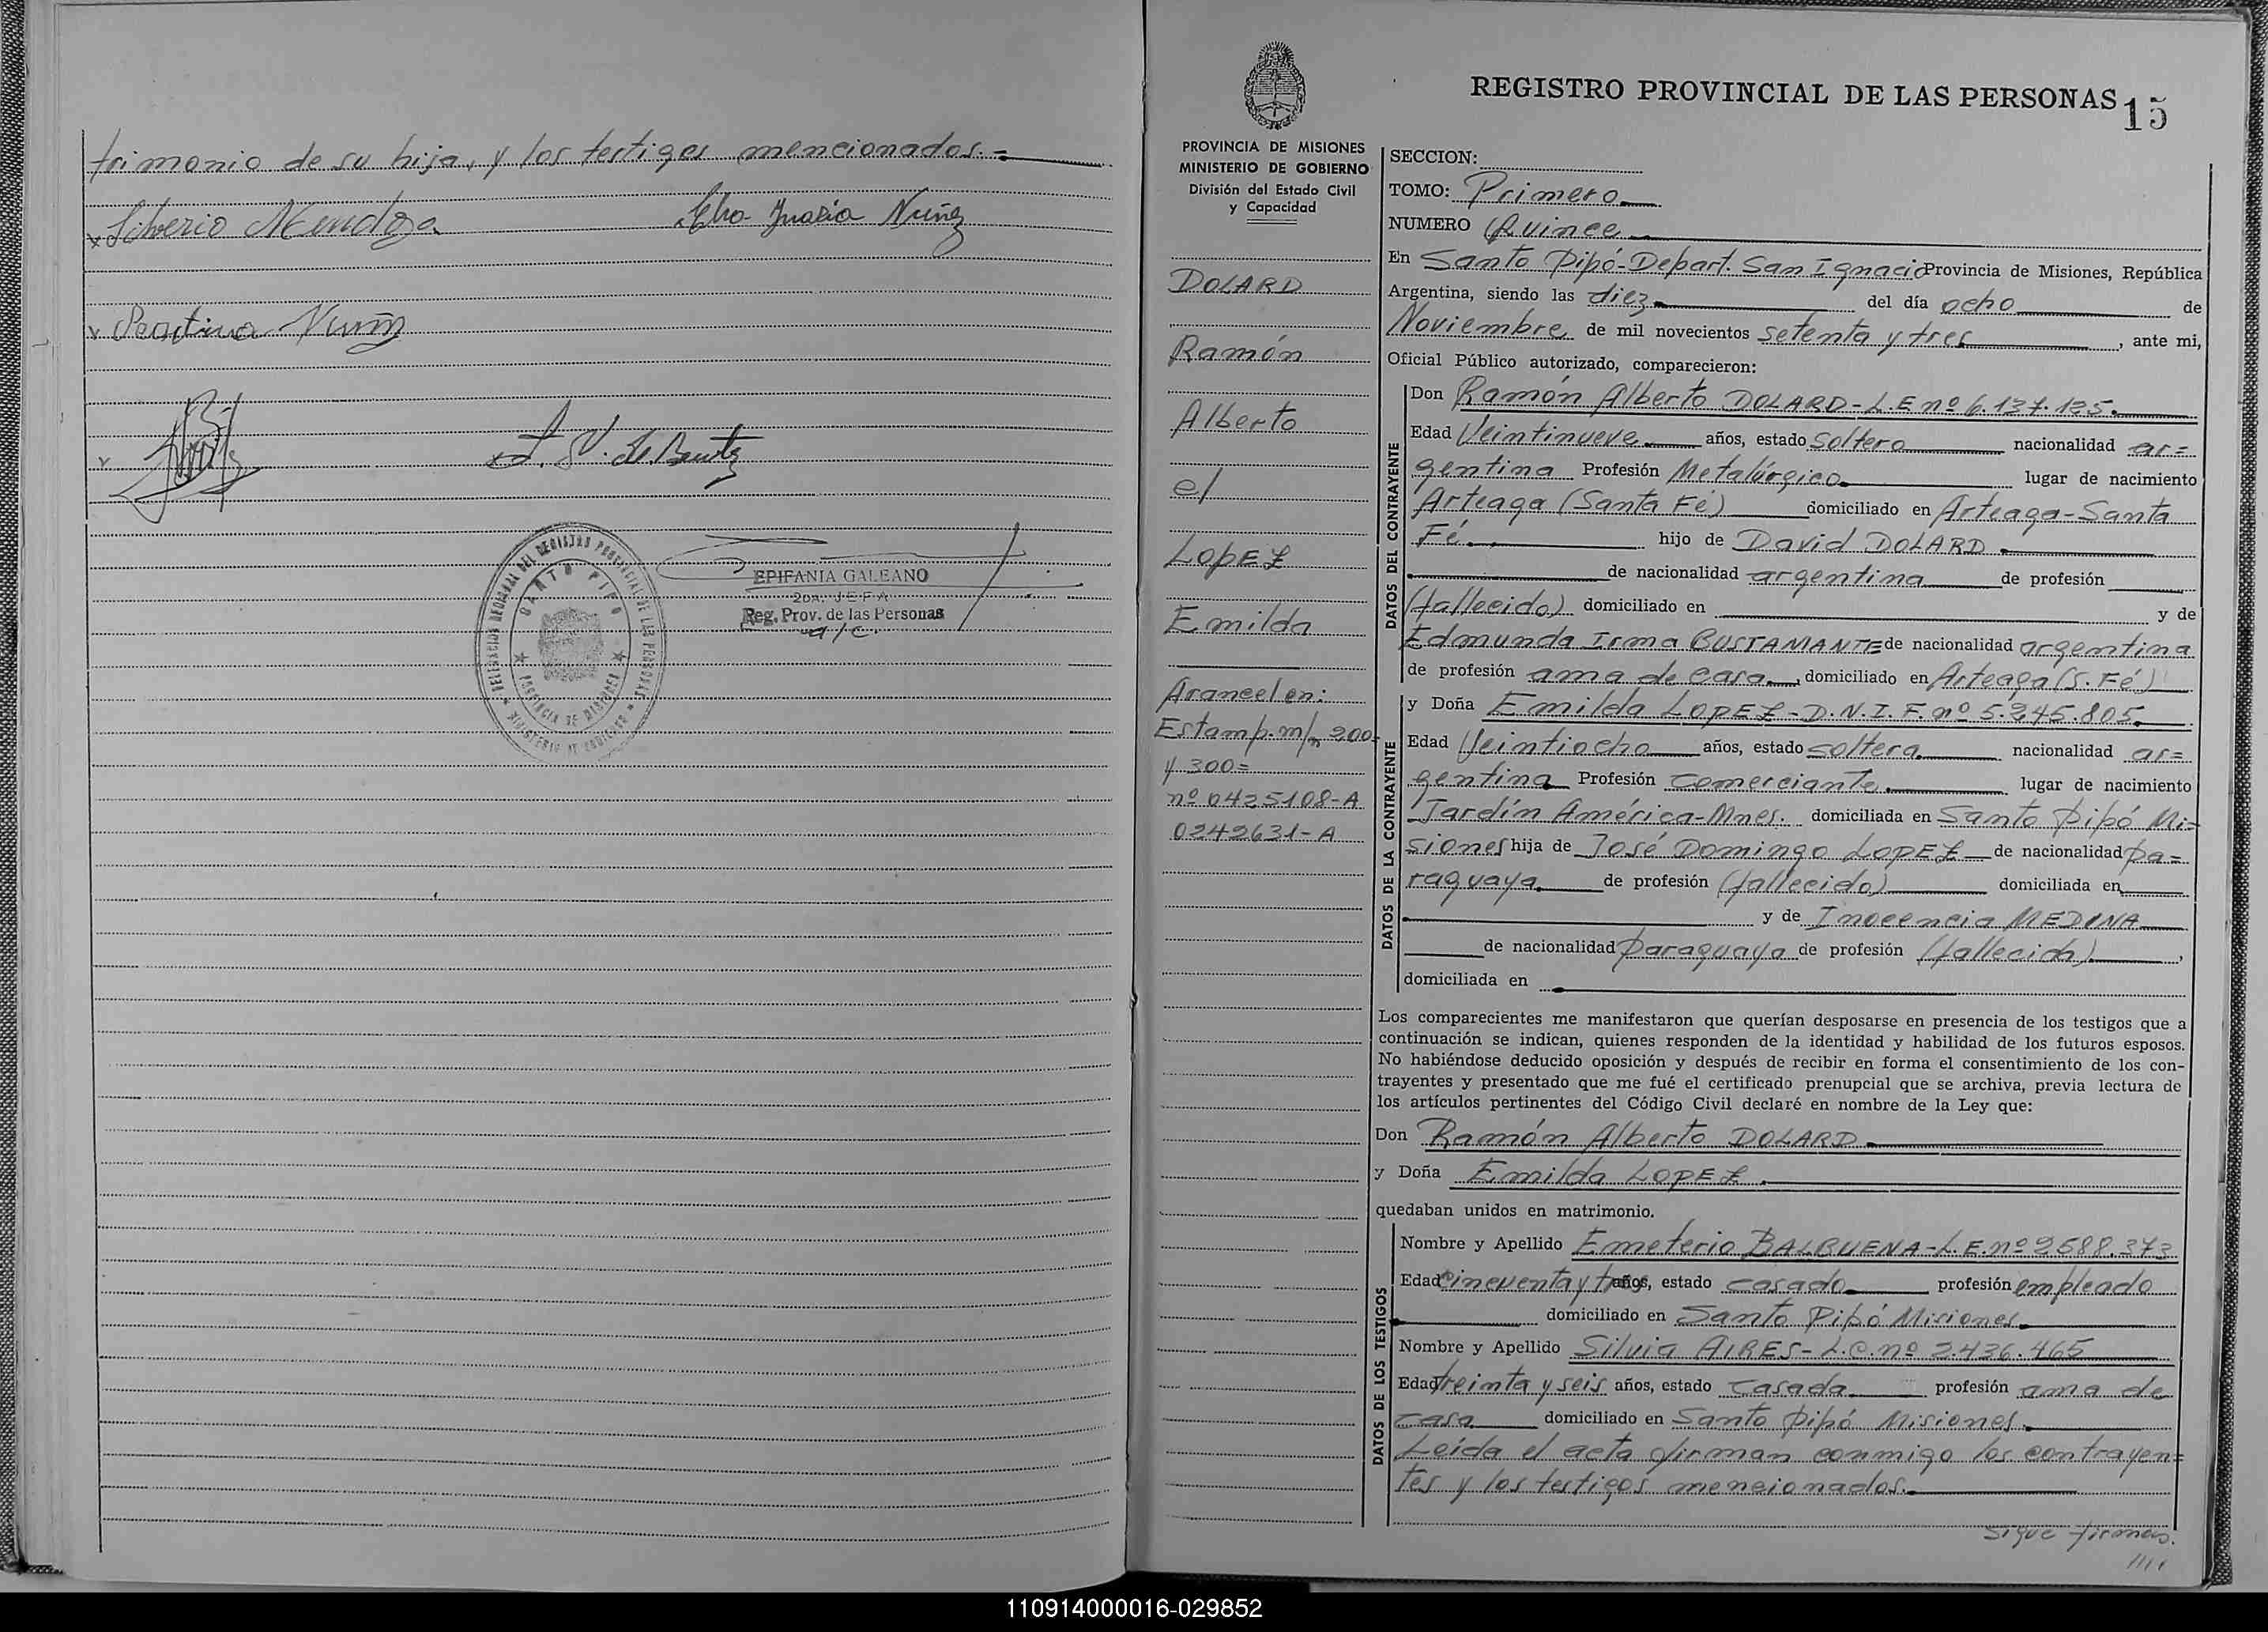 trimonio de su hija, y los testigos mencionados.=
x Silverio Mendoza
Nuñez
x
x
A. V. de Benitez
SANTO PIPO
PROVINCIA DE MISIONES
EPIFANIA GALEANO
2DA. JEFA
Reg. Prov. de las Personas
a/c.
REGISTRO PROVINCIAL DE LAS PERSONAS
15
PROVINCIA DE MISIONES
MINISTERIO DE GOBIERNO
División del Estado Civil
y Capacidad
DOLARD
Ramón
Alberto
el
LOPEZ
Emilda
Arancel en:
Estamp. m/n 200
y 300=
nº 0425108-A
0242631-A
SECCION:
TOMO: Primero
NUMERO Quince
En Santo Pipó-Depart. San Ignacio Provincia de Misiones, República
Argentina, siendo las diez del día ocho de
Noviembre de mil novecientos setenta y tres, ante mi,
Oficial Público autorizado, comparecieron:
DATOS DEL CONTRAYENTE
Don Ramón Alberto DOLARD-L.E nº 6.137.125.
Edad Veintinueve años, estado soltero nacionalidad ar=
gentina Profesión Metalúrgico lugar de nacimiento
Arteaga (Santa Fé) domiciliado en Arteaga-Santa
Fé. hijo de David DOLARD
de nacionalidad argentina de profesión
(fallecido) domiciliado en y de
Edmunda Irma BUSTAMANTE de nacionalidad argentina
de profesión ama de casa, domiciliado en Arteaga (S. Fé)
DATOS DE LA CONTRAYENTE
y Doña Emilda LOPEZ-D.N.I.F. nº 5.245.805.
Edad Veintiocho años, estado soltera nacionalidad ar=
gentina Profesión comerciante. lugar de nacimiento
Jardín América-Mnes. domiciliada en Santo Pipó Mi=
siones hija de José Domingo LOPEZ de nacionalidad pa=
raguaya de profesión (fallecido) domiciliada en
y de Inocencia MEDINA
de nacionalidad paraguaya de profesión (fallecida),
domiciliada en
Los comparecientes me manifestaron que querían desposarse en presencia de los testigos que a
continuación se indican, quienes responden de la identidad y habilidad de los futuros esposos.
No habiéndose deducido oposición y después de recibir en forma el consentimiento de los con-
trayentes y presentado que me fué el certificado prenupcial que se archiva, previa lectura de
los artículos pertinentes del Código Civil declaré en nombre de la Ley que:
Don Ramón Alberto DOLARD
y Doña Emilda LOPEZ
quedaban unidos en matrimonio.
DATOS DE LOS TESTIGOS
Nombre y Apellido Emeterio BALBUENA-L.E. nº 2588.373
Edad cincuenta y tres años, estado casado profesión empleado
domiciliado en Santo Pipó Misiones
Nombre y Apellido Silvia AIRES-L.C. nº 2.436.465
Edad treinta y seis años, estado casada profesión ama de
casa domiciliado en Santo Pipó Misiones
Leída el acta firman conmigo los contrayen=
tes y los testigos mencionados.
Sigue firmas.
////
110914000016-029852